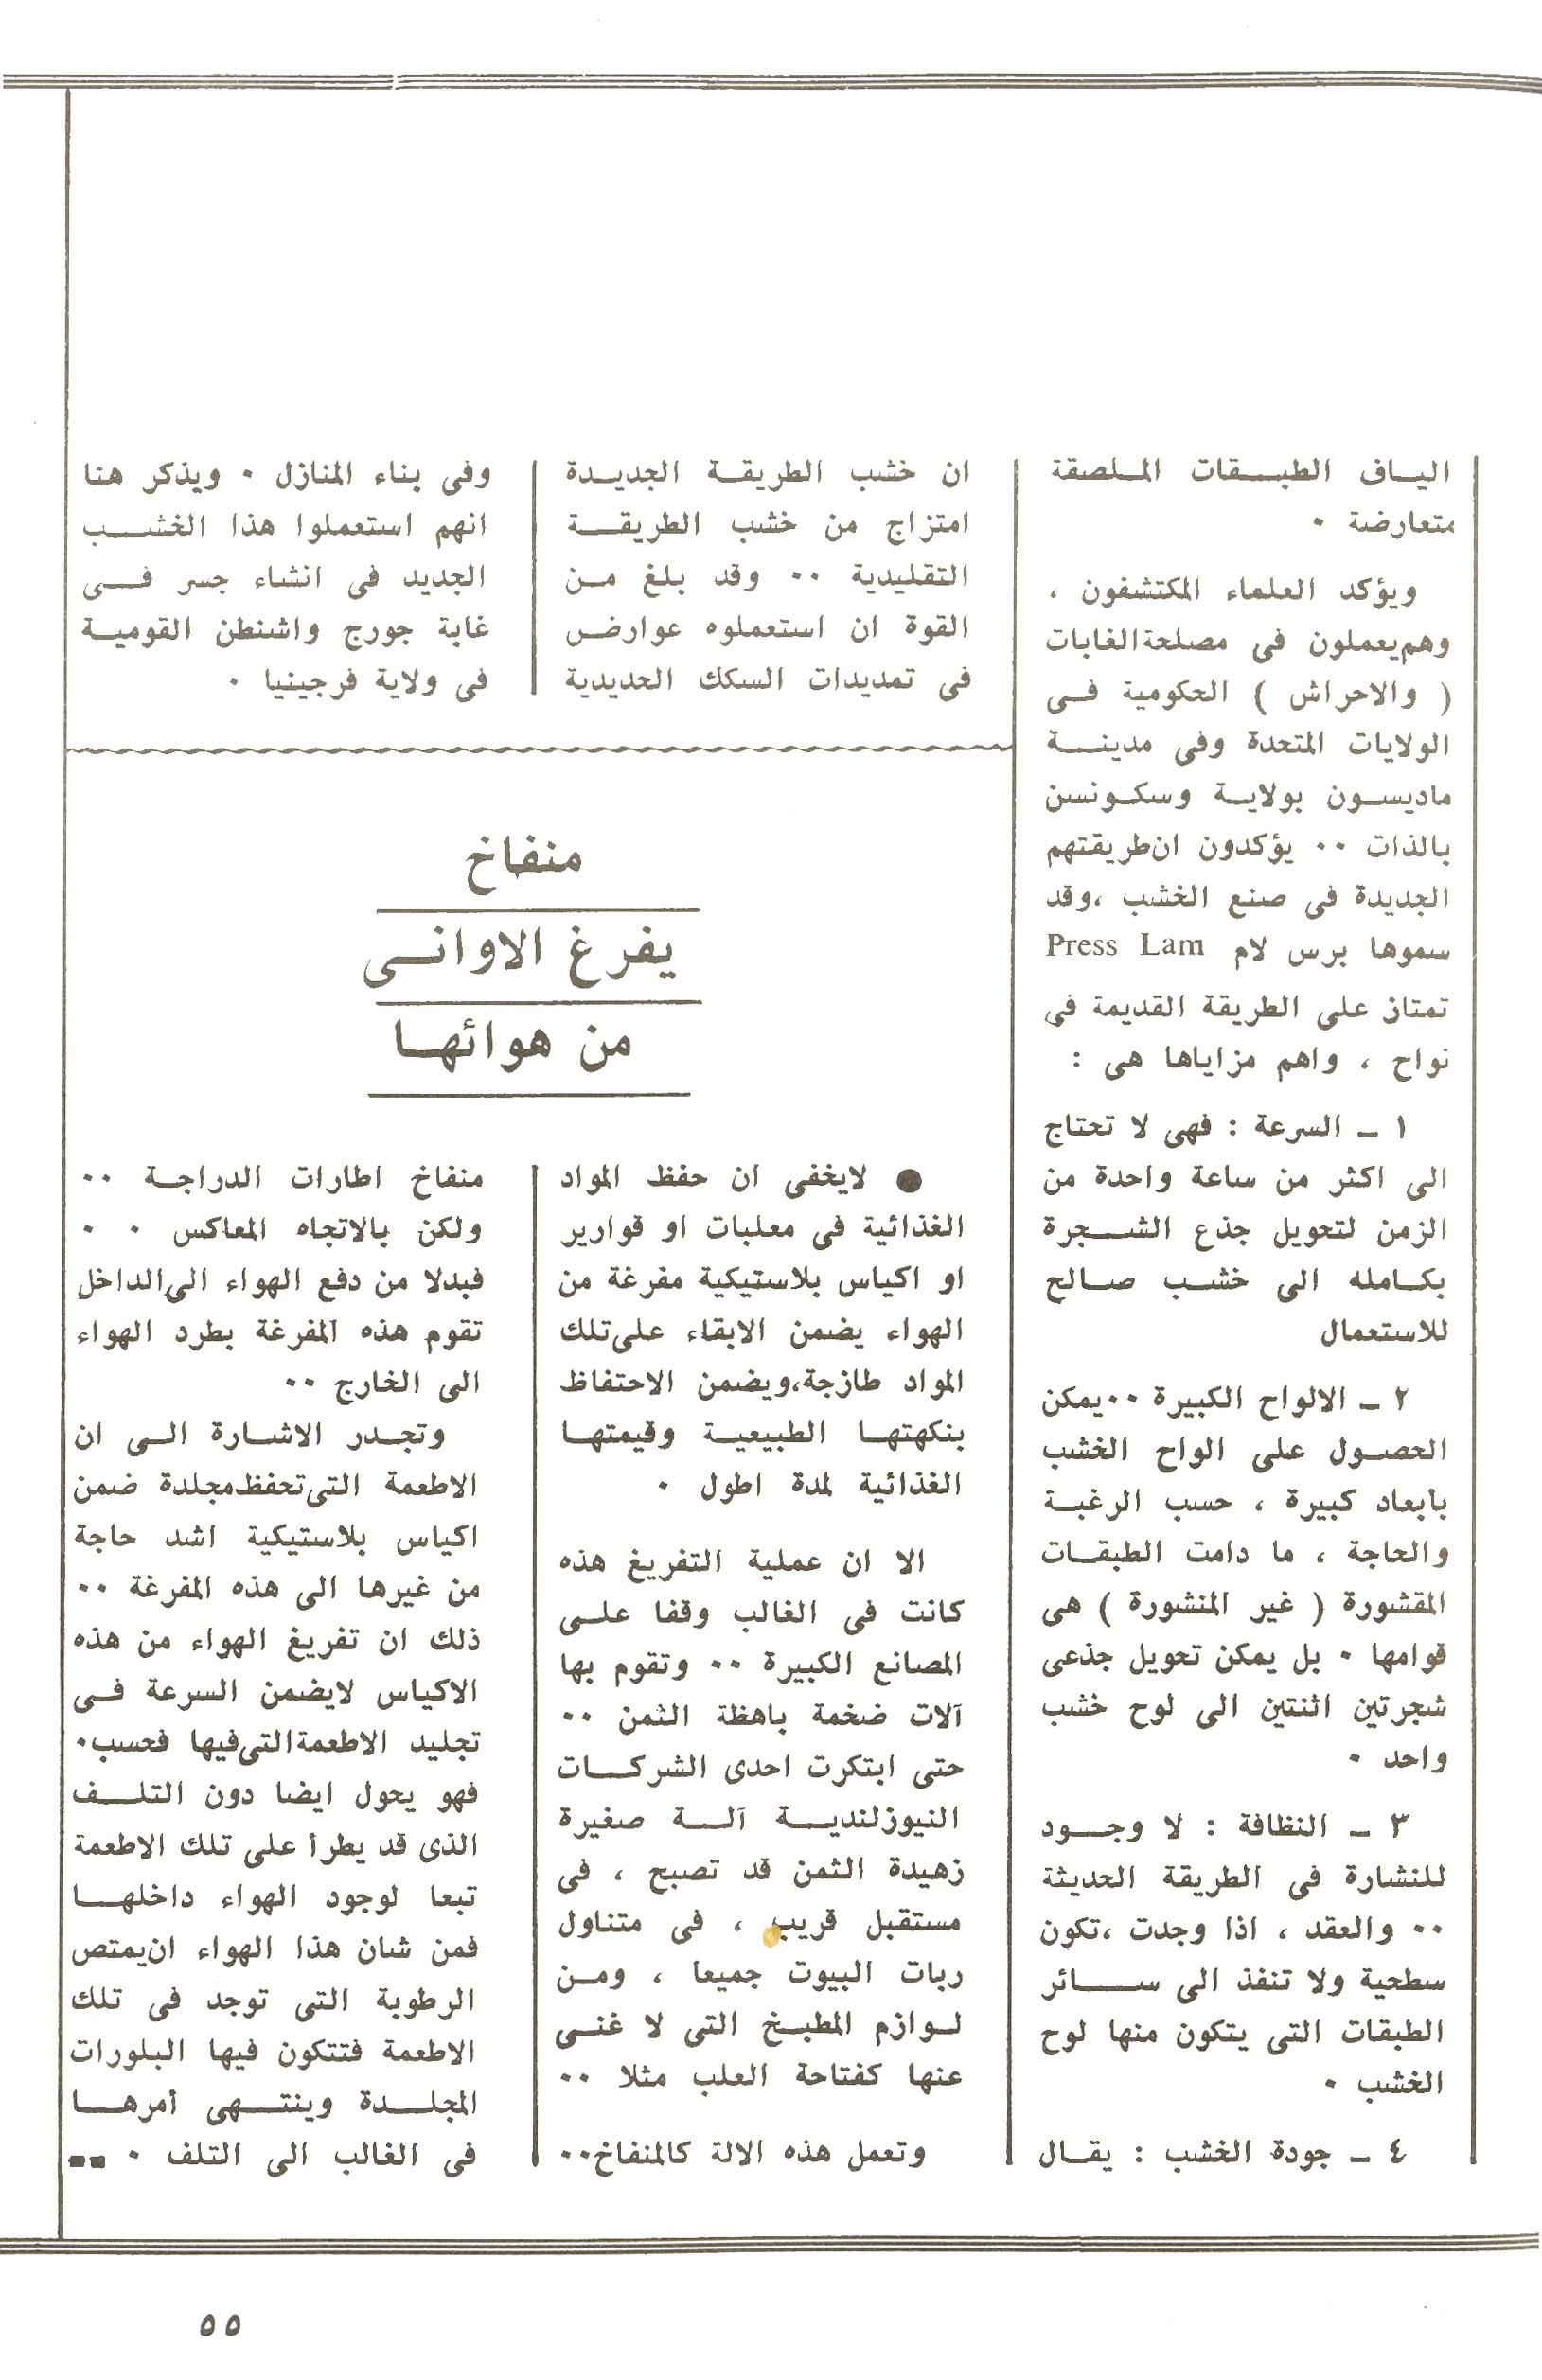 الياف الطبقات الملصقة
متعارضة ٠
ويؤكد العلماء المكتشفون ،
وهم يعملون فى مصلحة الغابات
( والاحراش ) الحكومية فى
الولايات المتحدة وفى مدينة
ماديسون بولاية وسكونسن
بالذات ٠٠ يؤكدون ان طريقتهم
الجديدة فى صنع الخشب ،وقد
سموها برس لام Press Lam
تمتاز على الطريقة القديمة فى
نواح ، واهم مزاياها هى :
١ ـ السرعة : فهى لا تحتاج
الى اكثر من ساعة واحدة من
الزمن لتحويل جذع الشجرة
بكامله الى خشب صالح
للاستعمال
٢ ـ الالواح الكبيرة ٠٠يمكن
الحصول على الواح الخشب
بابعاد كبيرة ، حسب الرغبة
والحاجة ، ما دامت الطبقات
المقشورة ( غير المنشورة ) هى
قوامها ٠ بل يمكن تحويل جذعى
شجرتين اثنتين الى لوح خشب
واحد ٠
٣ ـ النظافة : لا وجود
للنشارة فى الطريقة الحديثة
٠٠ والعقد ، اذا وجدت ،تكون
سطحية ولا تنفذ الى سائر
الطبقات التى يتكون منها لوح
الخشب ٠
٤ ـ جودة الخشب : يقال
ان خشب الطريقة الجديدة
امتزاج من خشب الطريقة
التقليدية ٠٠ وقد بلغ من
القوة ان استعملوه عوارض
فى تمديدات السكك الحديدية
وفى بناء المنازل ٠ ويذكر هنا
انهم استعملوا هذا الخشب
الجديد فى انشاء جسر فى
غابة جورج واشنطن القومية
فى ولاية فرجينيا ٠
منفاخ
يفرغ الاوانى
من هوائها
● لايخفى ان حفظ المواد
الغذائية فى معلبات او قوارير
او اكياس بلاستيكية مفرغة من
الهواء يضمن الابقاء على تلك
المواد طازجة،ويضمن الاحتفاظ
بنكهتها الطبيعية وقيمتها
الغذائية لمدة اطول ٠
الا ان عملية التفريغ هذه
كانت فى الغالب وقفا على
المصانع الكبيرة ٠٠ وتقوم بها
آلات ضخمة باهظة الثمن ٠٠
حتى ابتكرت احدى الشركات
النيوزلندية آلة صغيرة
زهيدة الثمن قد تصبح ، فى
مستقبل قريب ، فى متناول
ربات البيوت جميعا ، ومن
لوازم المطبخ التى لا غنى
عنها كفتاحة العلب مثلا ٠٠
وتعمل هذه الالة كالمنفاخ٠٠
منفاخ اطارات الدراجة ٠٠
ولكن بالاتجاه المعاكس ٠ ٠
فبدلا من دفع الهواء الى الداخل
تقوم هذه المفرغة بطرد الهواء
الى الخارج ٠٠
وتجدر الاشارة الى ان
الاطعمة التى تحفظ مجلدة ضمن
اكياس بلاستيكية اشد حاجة
من غيرها الى هذه المفرغة ٠٠
ذلك ان تفريغ الهواء من هذه
الاكياس لايضمن السرعة فى
تجليد الاطعمة التى فيها فحسب٠
فهو يحول ايضا دون التلف
الذى قد يطرأ على تلك الاطعمة
تبعا لوجود الهواء داخلها
فمن شان هذا الهواء ان يمتص
الرطوبة التى توجد فى تلك
الاطعمة فتتكون فيها البلورات
المجلدة وينتهى أمرها
فى الغالب الى التلف ٠
٥٥